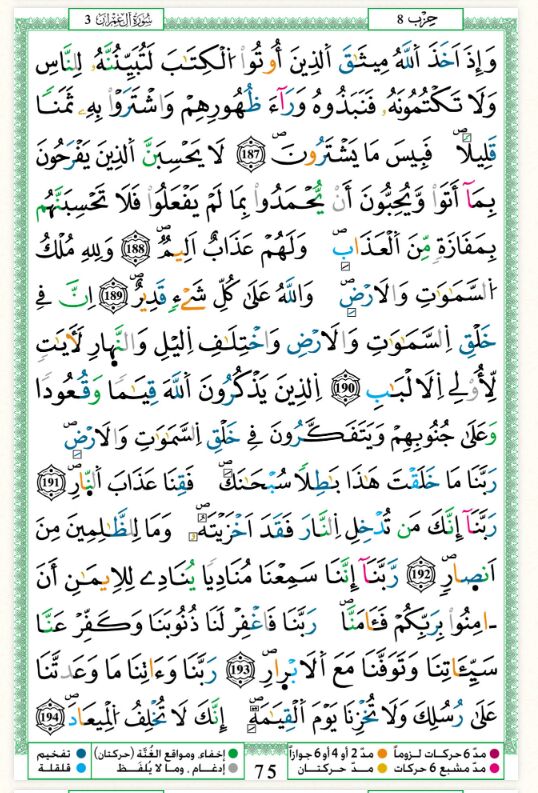 سُورَةُ آلِ عِمْرَانَ 3
حِزْب 8
وَإِذَ اَخَذَ اَللَّهُ مِيثَٰقَ اَلذِينَ أُوتُواْ اُلْكِتَٰبَ لَتُبَيِّنُنَّهُۥ لِلنَّاسِ
وَلَا تَكْتُمُونَهُۥ فَنَبَذُوهُ وَرَآءَ ظُهُورِهِمْ وَاشْتَرَوْاْ بِهِۦ ثَمَناٗ
قَلِيلاٗۖ فَبِيسَ مَا يَشْتَرُونَۖ 187 لَا يَحْسِبَنَّ اَلذِينَ يَفْرَحُونَ
بِمَآ أَتَواْ وَّيُحِبُّونَ أَنْ يُّحْمَدُواْ بِمَا لَمْ يَفْعَلُواْ فَلَا تَحْسِبَنَّهُم
بِمَفَازَةٖ مِّنَ اَلْعَذَابِۖ وَلَهُمْ عَذَابٌ اَلِيمٌۖ 188 وَلِلهِ مُلْكُ
اُلسَّمَٰوَٰتِ وَالَارْضِۖ وَاللَّهُ عَلَىٰ كُلِّ شَےْءٖ قَدِيرٌۖ 189 اِنَّ فِے
خَلْقِ اِلسَّمَٰوَٰتِ وَالَارْضِ وَاخْتِلَٰفِ اِليْلِ وَالنَّهارِ لَأٓيَٰتٖ
لِّأُوْلِے اِلَالْبَٰبِ 190 اِلذِينَ يَذْكُرُونَ اَللَّهَ قِيَٰماٗ وَقُعُوداٗ
وَعَلَىٰ جُنُوبِهِمْ وَيَتَفَكَّرُونَ فِے خَلْقِ اِلسَّمَٰوَٰتِ وَالَارْضِۖ
رَبَّنَا مَا خَلَقْتَ هَٰذَا بَٰطِلاٗ سُبْحَٰنَكَۖ فَقِنَا عَذَابَ اَلنّارِۖ 191
رَبَّنَآ إِنَّكَ مَن تُدْخِلِ اِلنَّارَ فَقَدَ اَخْزَيْتَهُۥۖ وَمَا لِلظَّٰلِمِينَ مِنَ
اَنصارِۖ 192 رَّبَّنَآ إِنَّنَا سَمِعْنَا مُنَادِياٗ يُنَادِے لِلِايمَٰنِ أَنَ
اٰمِنُواْ بِرَبِّكُمْ فَـَٔامَنَّاۖ رَبَّنَا فَاغْفِرْ لَنَا ذُنُوبَنَا وَكَفِّرْ عَنَّا
سَيِّـَٔاتِنَا وَتَوَفَّنَا مَعَ اَلَابْرارِۖ 193 رَبَّنَا وَءَاتِنَا مَا وَعَدتَّنَا
عَلَىٰ رُسُلِكَ وَلَا تُخْزِنَا يَوْمَ اَلْقِيَٰمَةِۖ إِنَّكَ لَا تُخْلِفُ اُلْمِيعَادَۖ 194
مدّ 6 حركات لزوماً مدّ 2 أو 4 أو 6 جوازاً إخفاء، ومواقع الغُنَّة (حركتان) تفخيم
مدّ مشبع 6 حركات مدّ حركتان 75 إدغام، وما لا يُلفَظ قلقلة